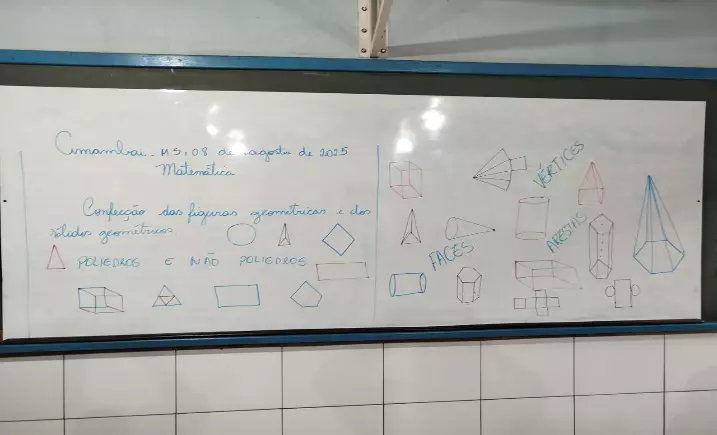 Amambai - MS, 08 de agosto de 2025
Matemática
Confecção das figuras geométricas e dos
sólidos geométricos
POLIEDROS E NÃO POLIEDROS
VÉRTICES
FACES
ARESTAS